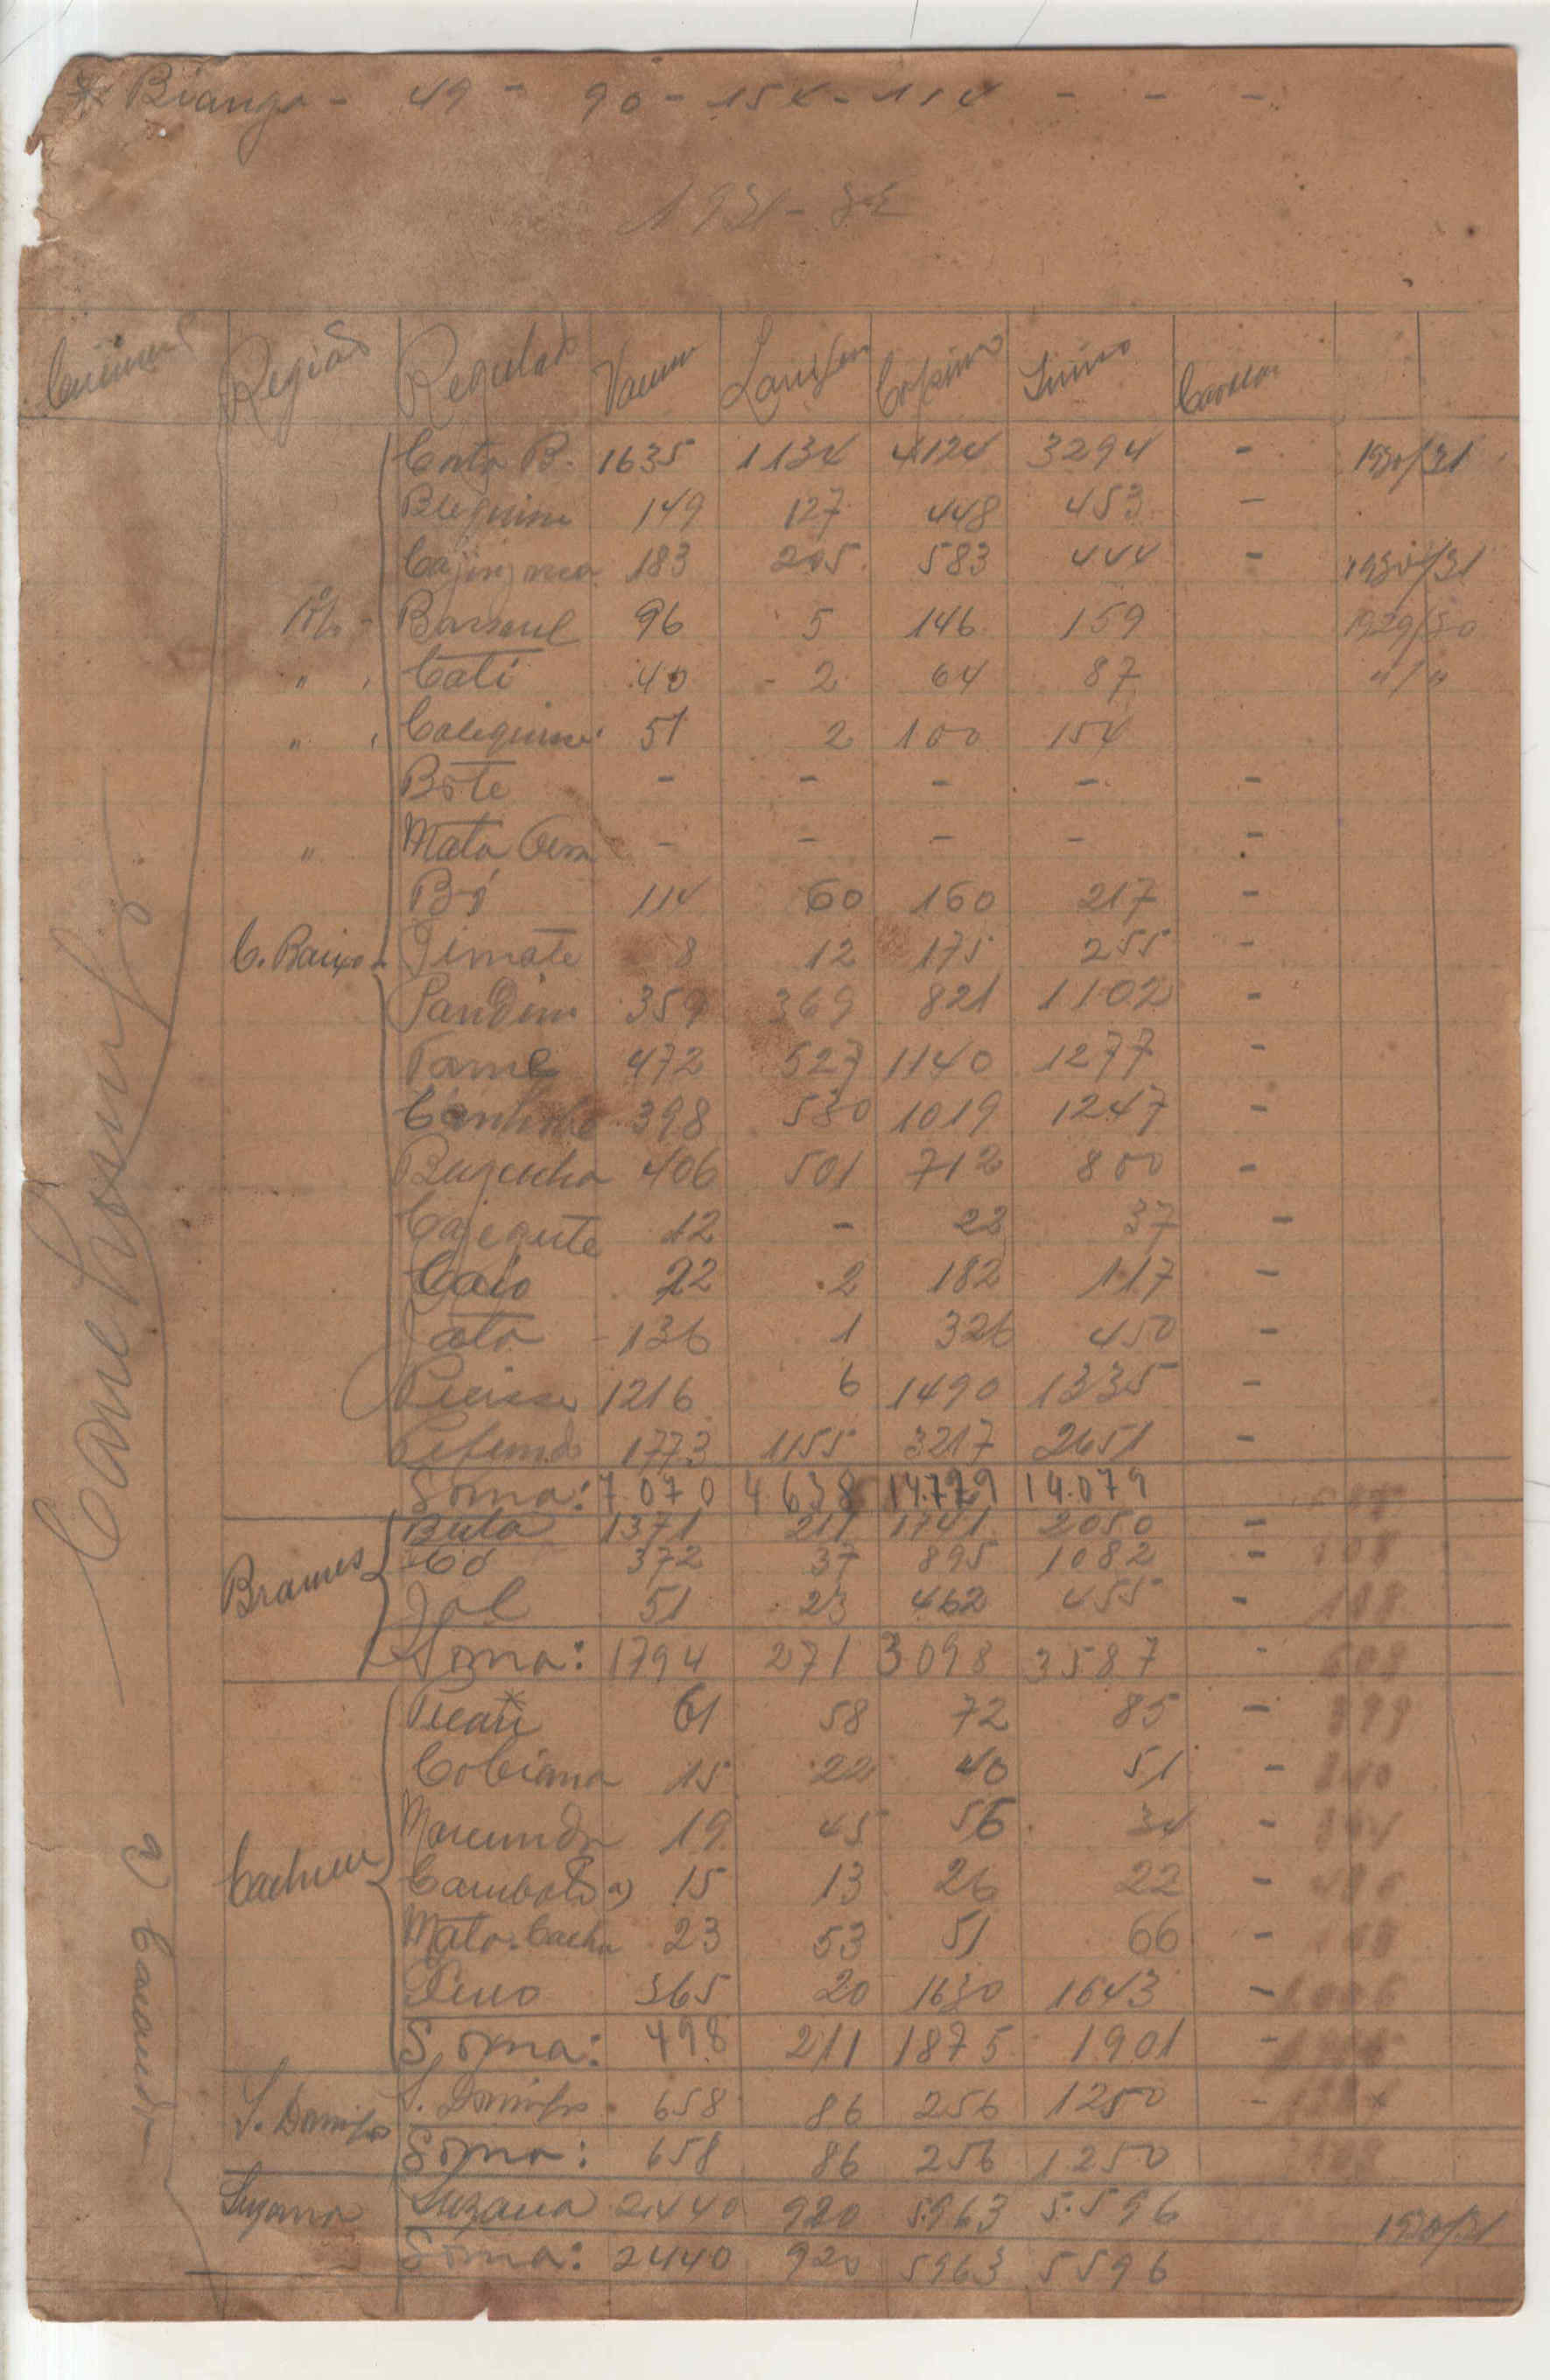 * Biango - 49 - 90 - 154 - 114 - - -
1931-32
Região Regulado Vacum Lanígero Caprino Suíno Cavalar
Costa B. 1635 1134 4124 3294 - 1930/31
149 127 448 453 -
183 205 583 444 - 1930/31
Bassarel 96 5 146 159 1929/30
" Cati 40 2 64 87 "/"
" Calequisse 51 2 100 154
Bote - - - - -
" Mata - - - - -
Bó 114 60 160 217 -
C. Baixo Timate 8 12 175 255 -
Pandim 359 369 821 1102 -
Tame 472 527 1140 1277 -
Canhobe 398 530 1019 1247 -
Bugulha 406 501 712 800 -
Cajegute 12 - 22 37 -
Caió 22 2 182 117 -
Jata 136 1 326 450 -
Pecisse 1216 6 1490 1335 -
Pelundo 1773 1155 3217 2651 -
Soma: 7.070 4638 14.779 14.079
Brames Bula 1371 211 1741 2050 -
Có 372 37 895 1082 -
Jol 51 23 462 455 -
Soma: 1794 271 3098 3587 -
Pecau* 61 58 72 85 -
Cobiana 15 22 40 51 -
19 45 56 34 -
Cacheu a) 15 13 26 22 -
Mata-Cacheu 23 53 51 66 -
365 20 1630 1643 -
Soma: 498 211 1875 1901 -
S. Domingos S. Domingos 658 86 256 1250 -
Soma: 658 86 256 1250
Suzana Suzana 2440 920 5963 5.596 1930/31
Soma: 2440 920 5963 5596
Canchungo